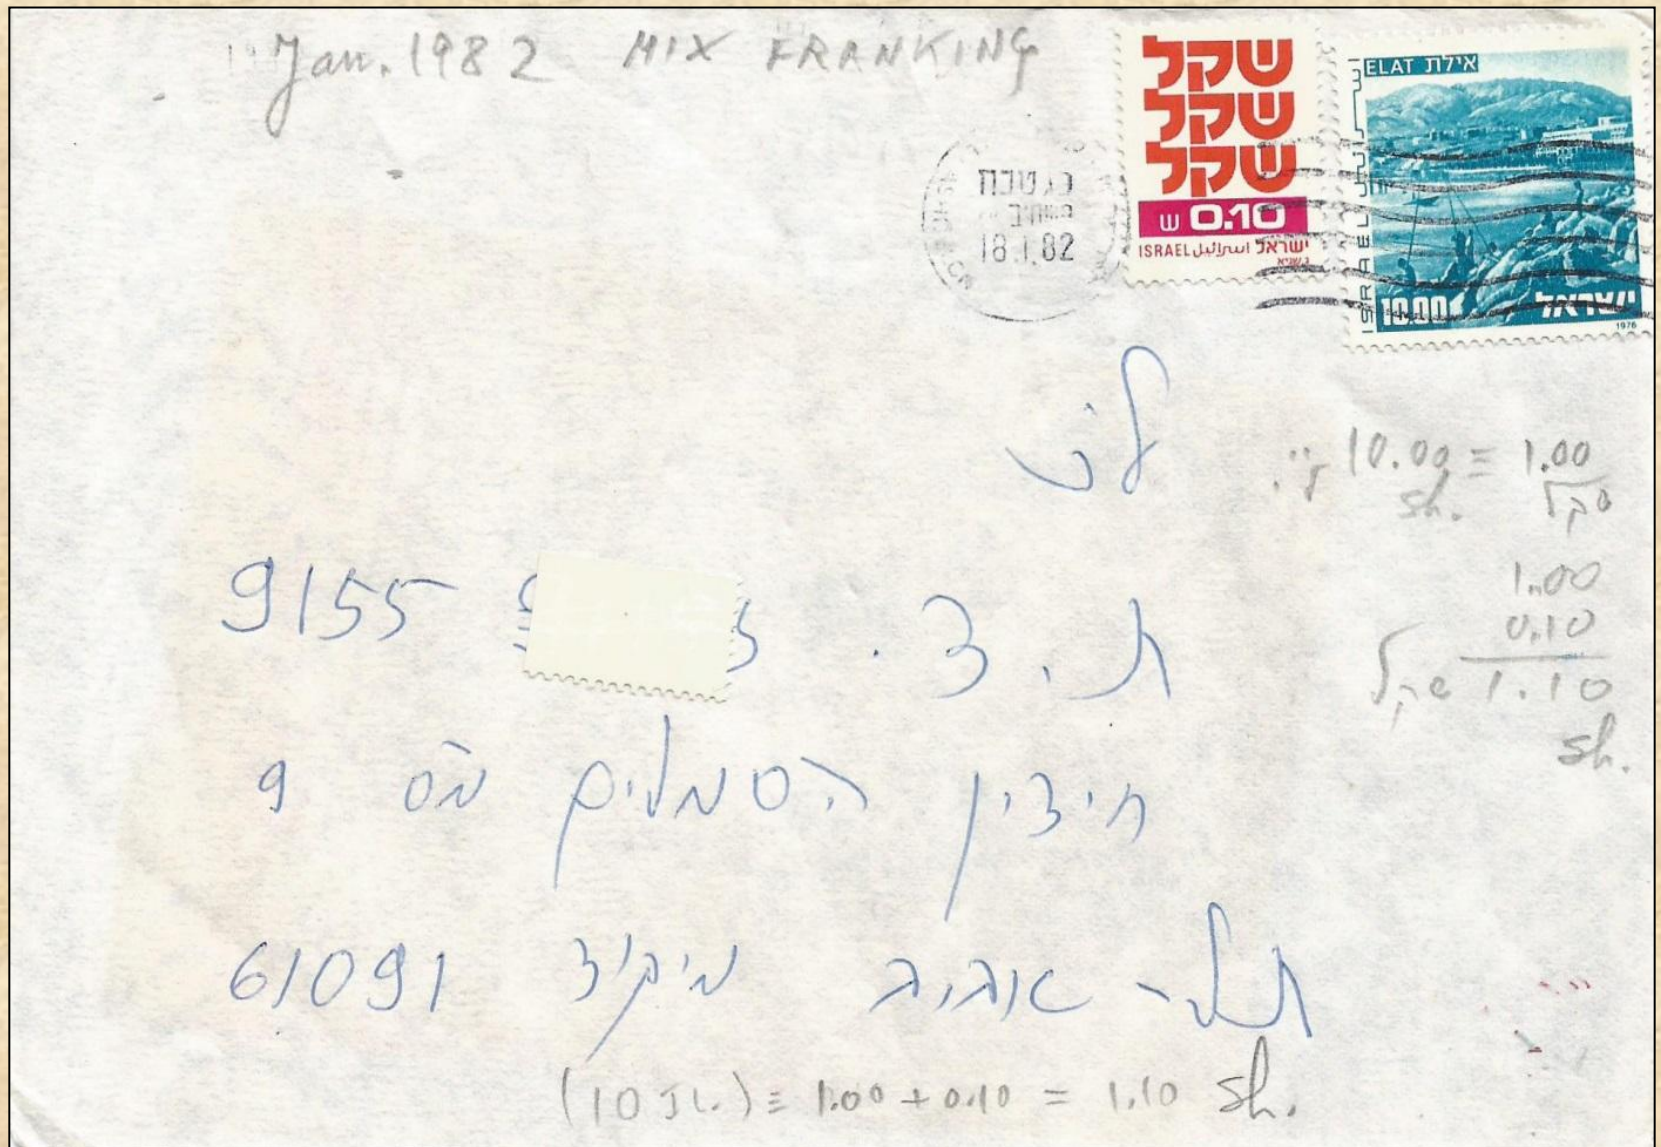 Jan. 1982 MIX FRANKING
שקל
שקל
שקל
ש 0.10
ISRAEL اسرائيل ישראל
ELAT אילת
ISRAEL
10.00 ישראל
1976
כג טבת
18.1.82
10.00 ≡ 1.00
sh. שקל
1.00
0.10
שקל 1.10
sh.
ת.ד. 9155
חידון הסמלים מס 9
תל-אביב מיקוד 61091
(10 IL.) ≡ 1.00 + 0.10 = 1.10 sh.